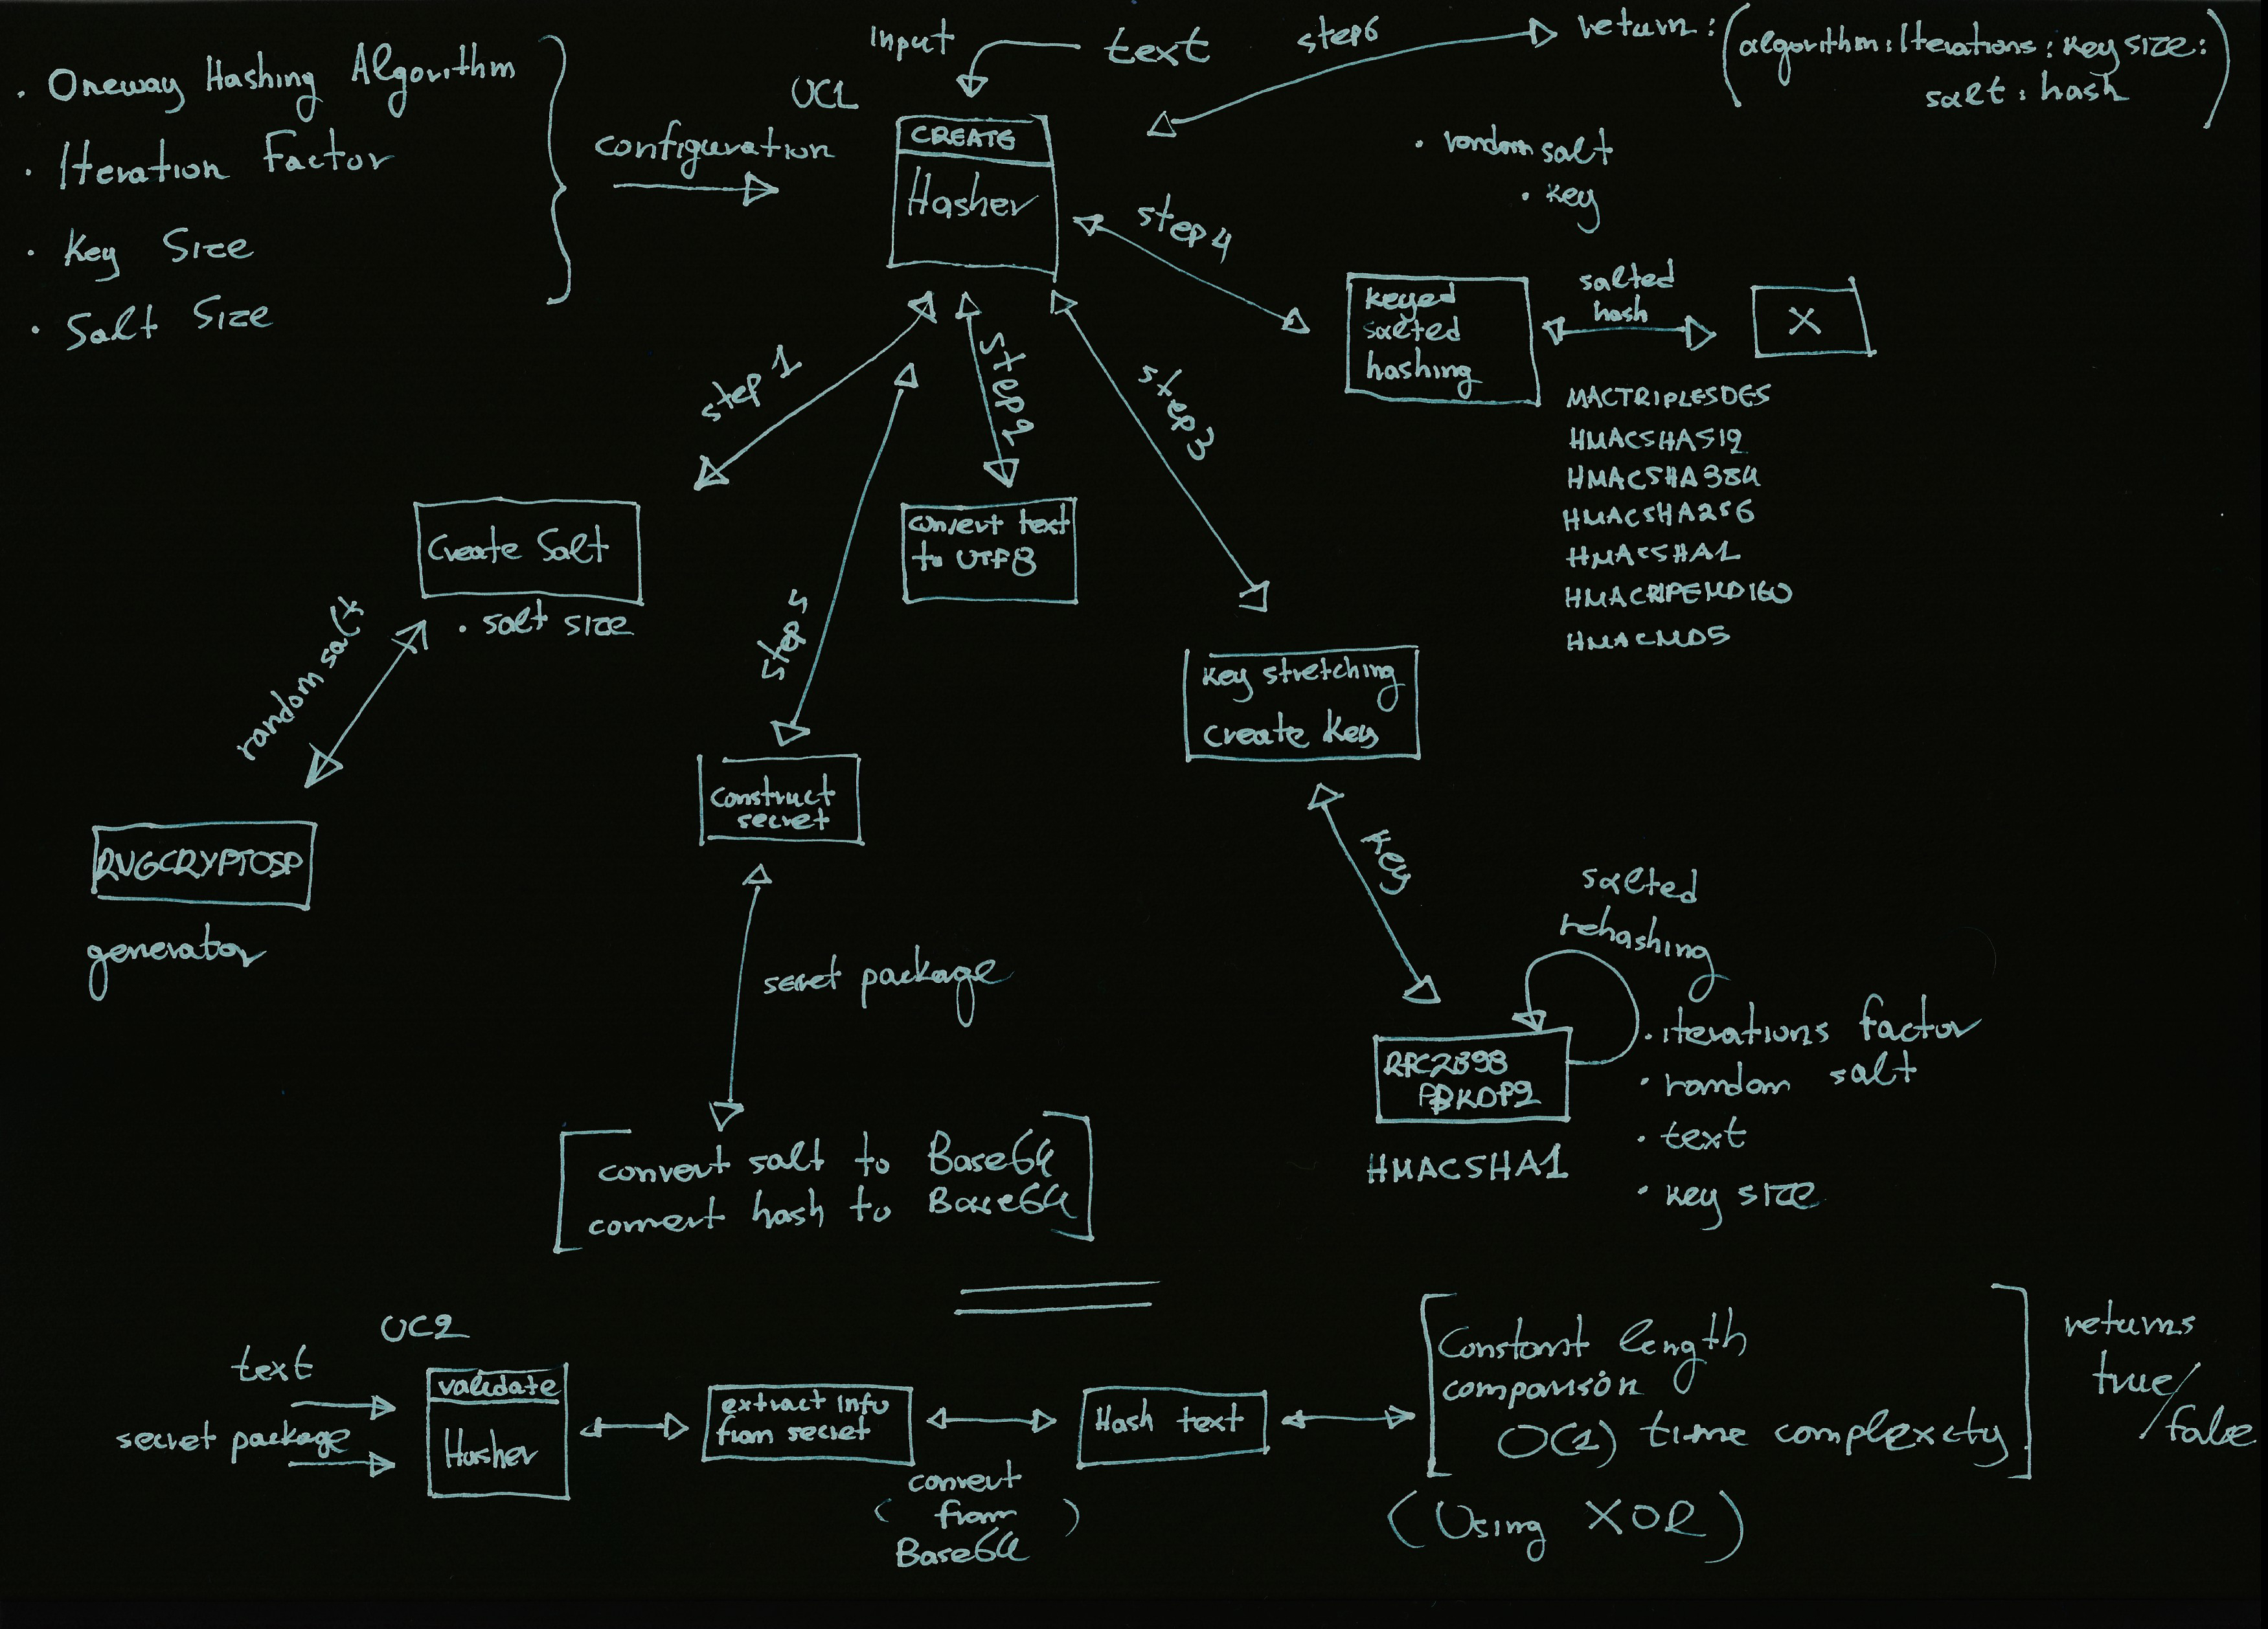 Input
text
step6
return:
(algorithm:Iterations:key size:
salt:hash)
• Oneway Hashing Algorithm
• Iteration Factor
• Key Size
• Salt Size
configuration
UC1
CREATE
Hasher
• random salt
• key
step4
keyed
salted
hashing
salted
hash
X
MACTRIPLESDES
HMACSHA512
HMACSHA384
HMACSHA256
HMACSHA1
HMACRIPEMD160
HMACMD5
step 1
step2
step3
Create Salt
• salt size
convert text
to UTF8
step 5
random salt
key stretching
create key
construct
secret
RNGCRYPTOSP
generator
key
salted
rehashing
secret package
RFC2898
PBKDF2
HMACSHA1
• iterations factor
• random salt
• text
• key size
convert salt to Base64
convert hash to Base64
UC2
text
secret package
validate
Hasher
extract info
from secret
(convert
from
Base64)
Hash text
Constant length
comparison
O(1) time complexity
(Using XOR)
returns
true/
false